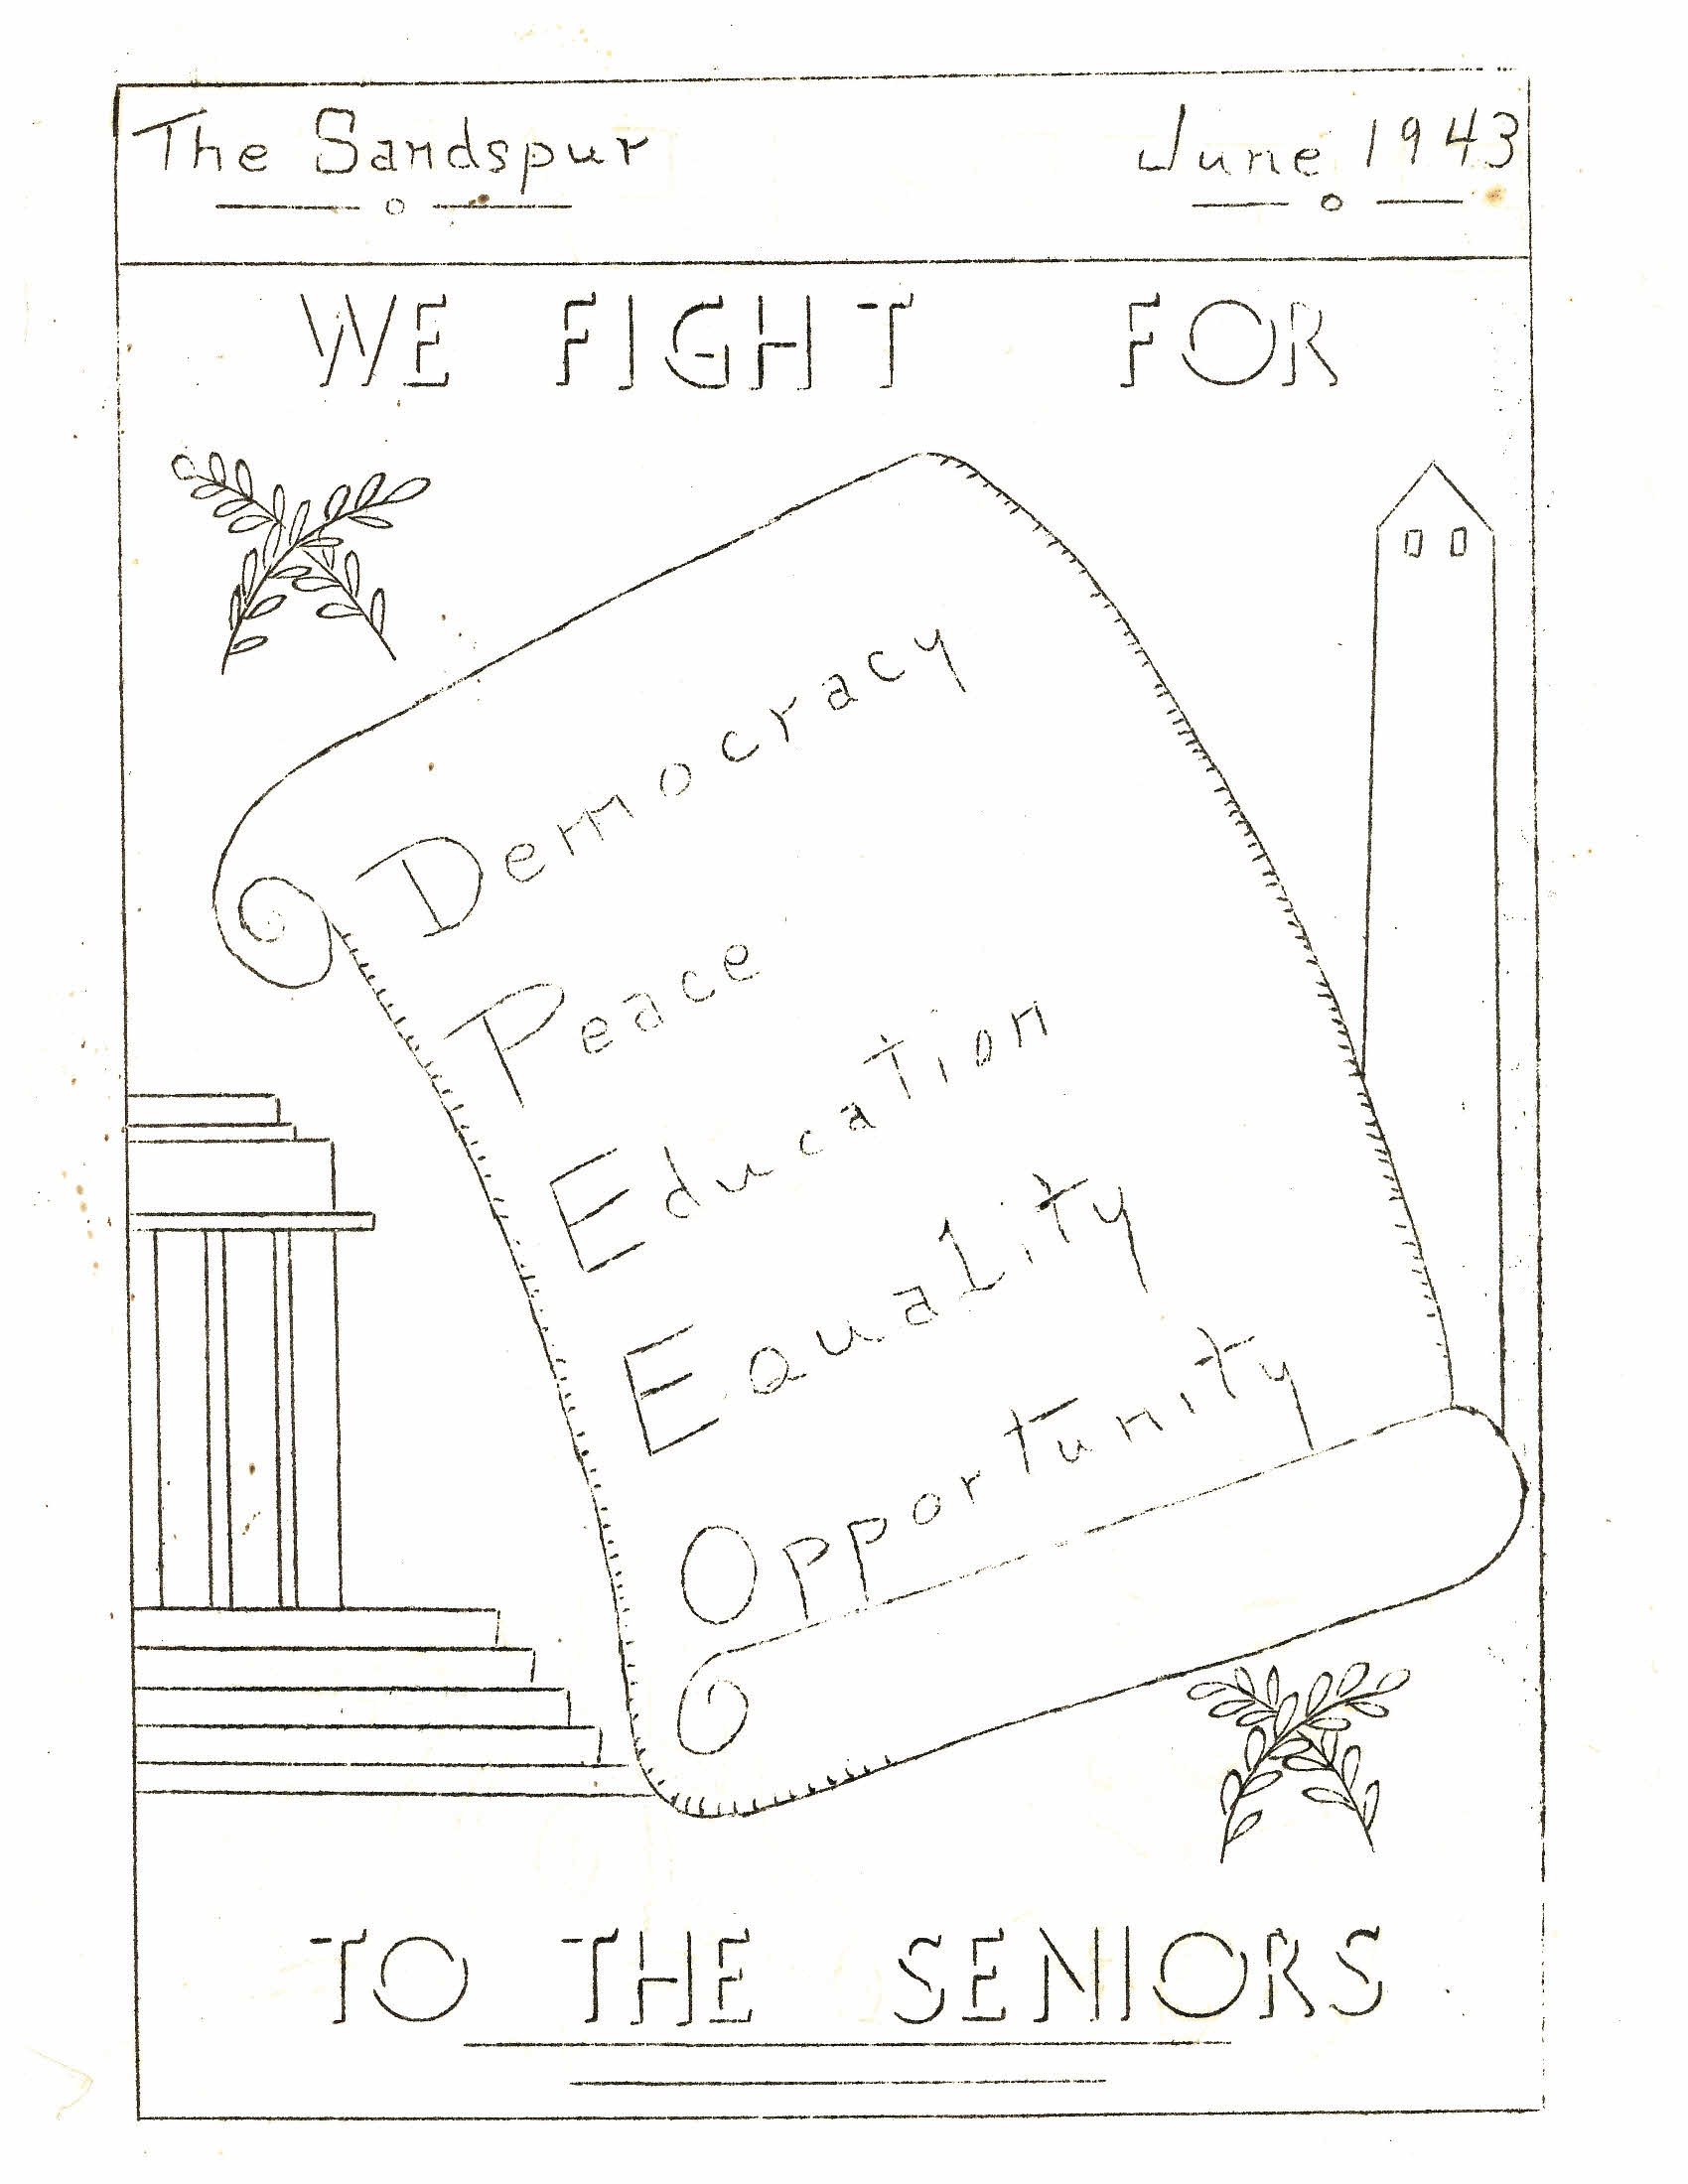 The Sandspur June 1943
WE FIGHT FOR
Democracy
Peace
Education
Equality
Opportunity
TO THE SENIORS